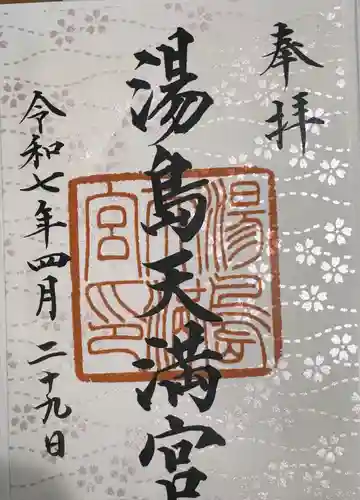 奉拝
湯島天満宮
令和七年四月二十九日
湯島天満宮印